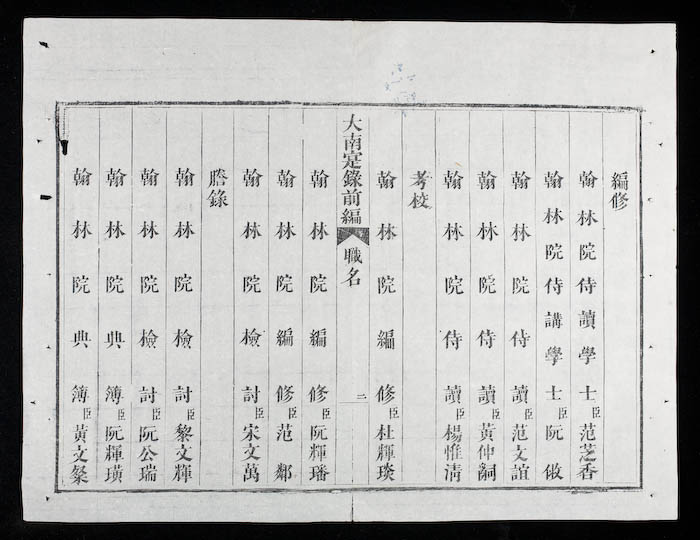 編修
翰林院侍讀學士臣范芝香
翰林院侍講學士臣阮儆
翰林院侍讀臣范文誼
翰林院侍讀臣黃仲嗣
翰林院侍讀臣楊惟清
考校
翰林院編修臣杜輝琰
大南寔錄前編 職名 二
翰林院編修臣阮輝璠
翰林院編修臣范鄰
翰林院檢討臣宋文萬
謄錄
翰林院檢討臣黎文輝
翰林院檢討臣阮公瑞
翰林院典簿臣阮輝璜
翰林院典簿臣黃文粲